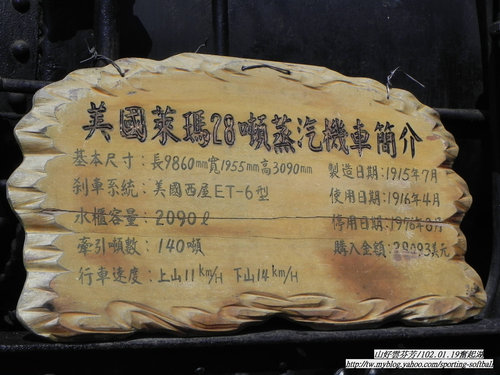 美國萊瑪28噸蒸汽機車簡介
基本尺寸：長9860mm寬1955mm高3090mm
製造日期：1915年7月
刹車系統：美國西屋ET-6型
使用日期：1916年4月
水櫃容量：2090ℓ
停用日期：1976年8月
牽引噸數：140噸
購入金額： 美元
行車速度：上山11km/H 下山14km/H
山好雲芬芳/102.01.19奮起湖
http://tw.myblog.yahoo.com/sporting-softball